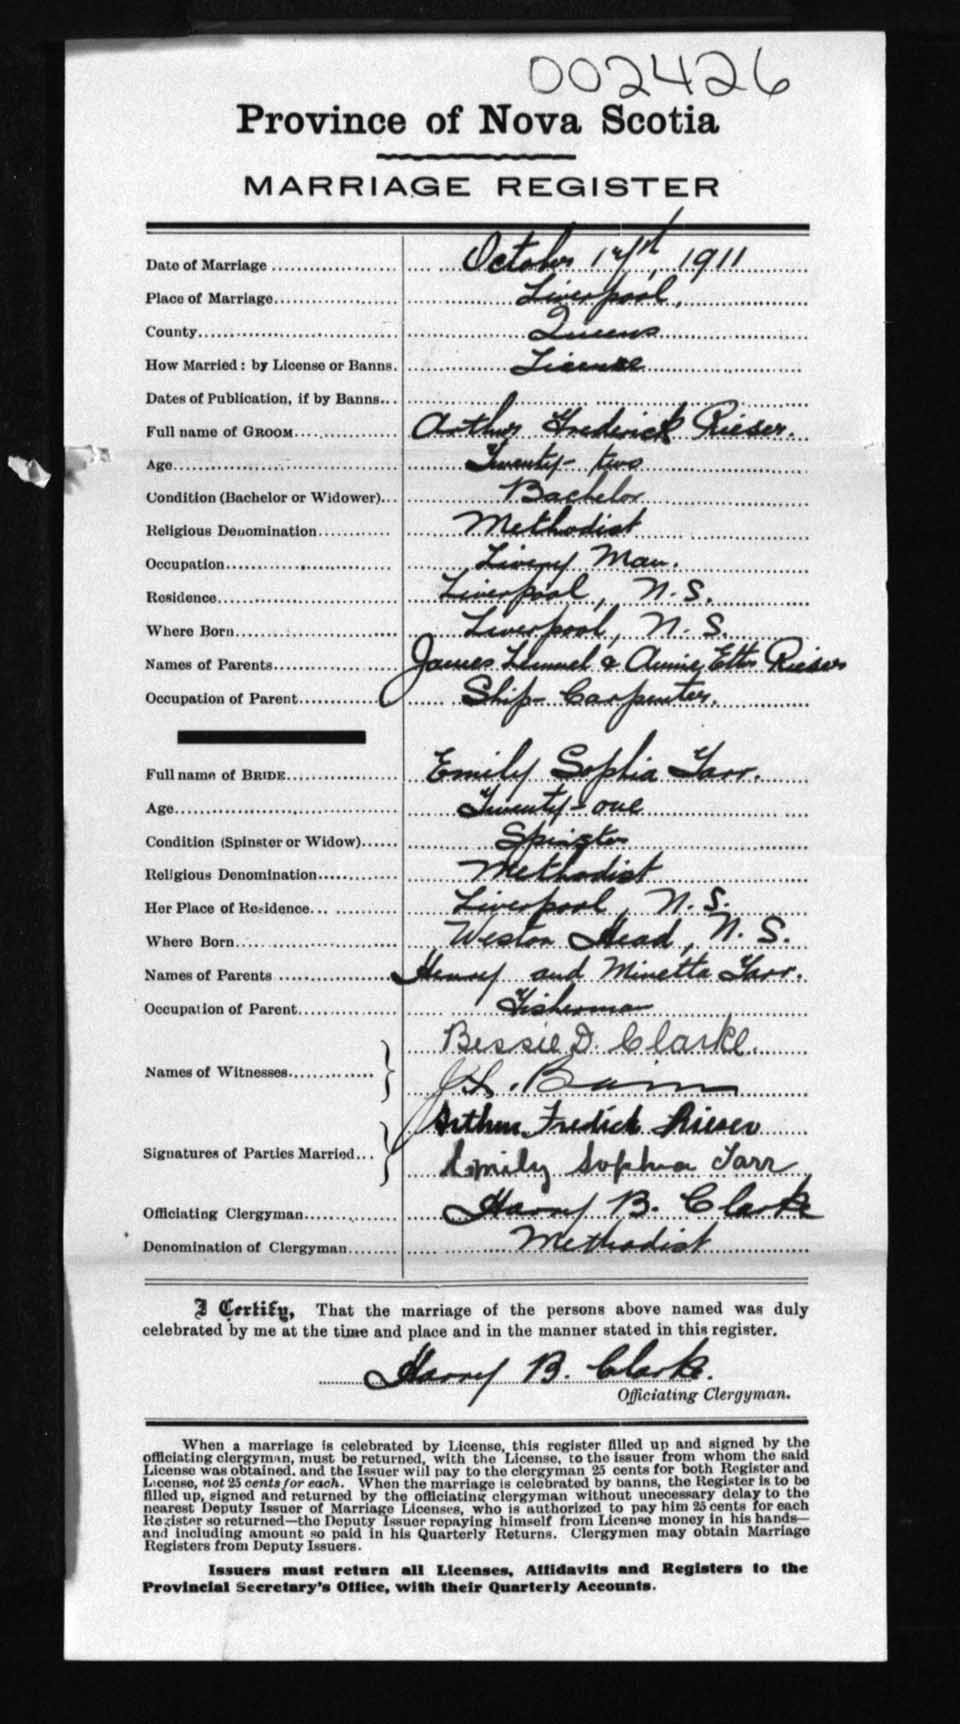 002426
Province of Nova Scotia
MARRIAGE REGISTER
Date of Marriage October 17th, 1911
Place of Marriage Liverpool,
County Queens
How Married: by License or Banns. License
Dates of Publication, if by Banns
Full name of GROOM Arthur Frederick Rieser.
Age Twenty-two
Condition (Bachelor or Widower) Bachelor
Religious Denomination Methodist
Occupation Livery Man.
Residence Liverpool, N.S.
Where Born Liverpool, N.S.
Names of Parents James Lemuel & Annie Etta Rieser
Occupation of Parent Ship-Carpenter.
Full name of BRIDE Emily Sophia Tarr.
Age Twenty-one
Condition (Spinster or Widow) Spinster
Religious Denomination Methodist
Her Place of Residence Liverpool, N.S.
Where Born Western Head, N.S.
Names of Parents Henry and Minetta Tarr.
Occupation of Parent Fisherman
Names of Witnesses Bessie D. Clarke.
Bain
Signatures of Parties Married Arthur Fredick Rieser
Emily Sophia Tarr
Officiating Clergyman Harry B. Clarke
Denomination of Clergyman Methodist
I Certify, That the marriage of the persons above named was duly
celebrated by me at the time and place and in the manner stated in this register.
Harry B. Clarke.
Officiating Clergyman.
When a marriage is celebrated by License, this register filled up and signed by the
officiating clergyman, must be returned, with the License, to the issuer from whom the said
License was obtained, and the Issuer will pay to the clergyman 25 cents for both Register and
License, not 25 cents for each. When the marriage is celebrated by banns, the Register is to be
filled up, signed and returned by the officiating clergyman without unnecessary delay to the
nearest Deputy Issuer of Marriage Licenses, who is authorized to pay him 25 cents for each
Register so returned—the Deputy Issuer repaying himself from License money in his hands—
and including amount so paid in his Quarterly Returns. Clergymen may obtain Marriage
Registers from Deputy Issuers.
Issuers must return all Licenses, Affidavits and Registers to the
Provincial Secretary's Office, with their Quarterly Accounts.